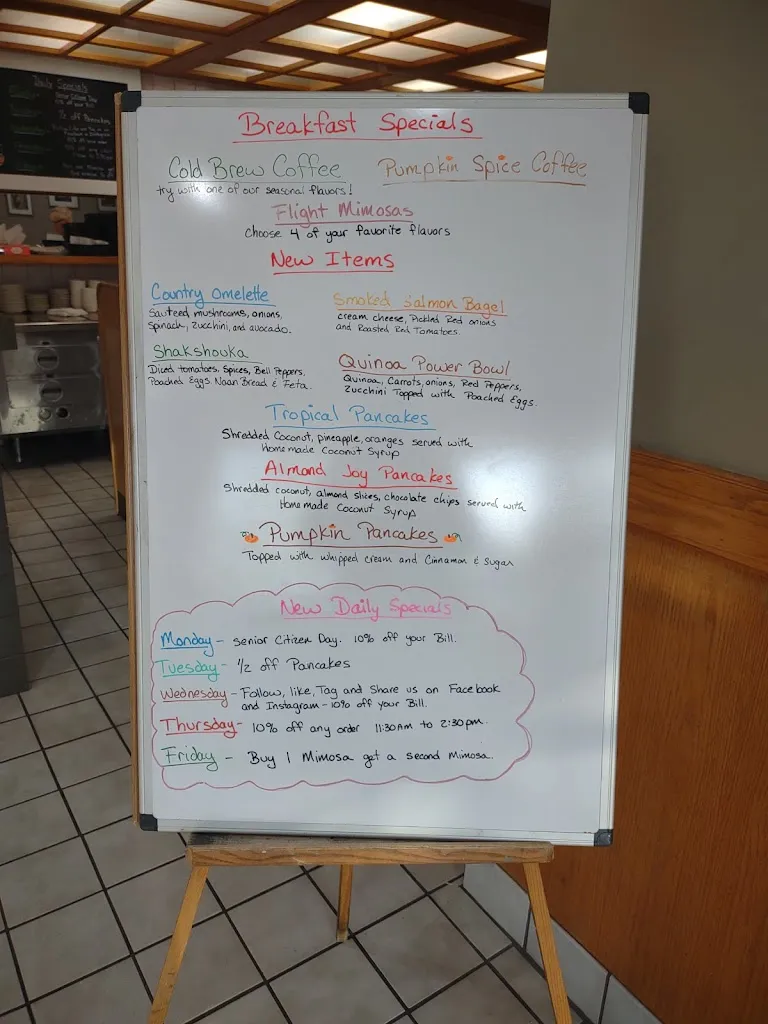 Daily Specials
1/2 off Pancakes
Breakfast Specials
Cold Brew Coffee
try with one of our seasonal flavors!
Pumpkin Spice Coffee
Flight Mimosas
Choose 4 of your favorite flavors
New Items
Country Omelette
Sauteed mushrooms, onions,
Spinach, Zucchini, and avocado.
Smoked Salmon Bagel
cream cheese, Pickled Red onions
and Roasted Red Tomatoes.
Shakshouka
Diced tomatoes, Spices, Bell Peppers,
Poached Eggs Naan Bread & Feta.
Quinoa Power Bowl
Quinoa, Carrots, onions, Red Peppers,
Zucchini Topped with Poached Eggs.
Tropical Pancakes
Shredded Coconut, pineapple, oranges served with
Homemade Coconut Syrup
Almond Joy Pancakes
Shredded coconut, almond slices, chocolate chips served with
Homemade Coconut Syrup
Pumpkin Pancakes
Topped with whipped cream and Cinnamon & Sugar
New Daily Specials
Monday - senior Citizen Day. 10% off your Bill.
Tuesday - 1/2 off Pancakes
Wednesday - Follow, like, Tag and Share us on Facebook
and Instagram - 10% off your Bill.
Thursday - 10% off any order 11:30am to 2:30pm.
Friday - Buy 1 Mimosa get a second Mimosa.